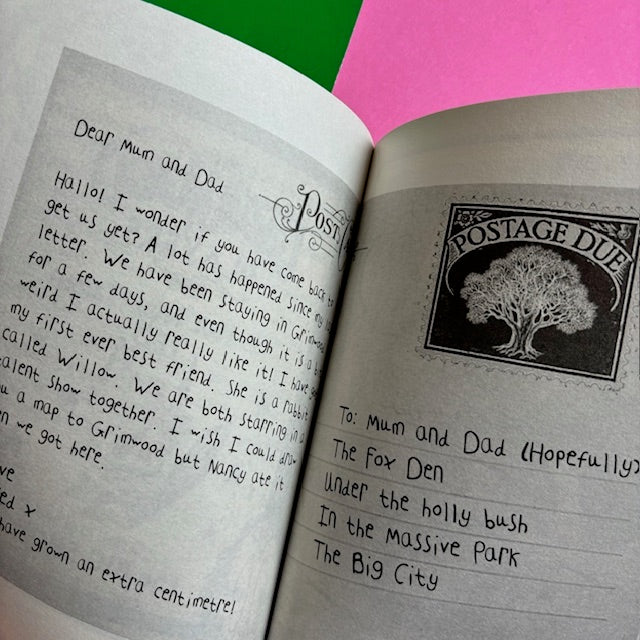 Dear Mum and Dad
Hallo! I wonder if you have come back to
get us yet? A lot has happened since my
letter. We have been staying in
for a few days, and even though it is a
weird I actually really like it! I have
my first ever best friend. She is a rabbit
called Willow. We are both starring in a
talent show together. I wish I could draw
a map to Grimwood but Nancy ate it
we got here.
x
have grown an extra centimetre!
POST
POSTAGE DUE
To: Mum and Dad (Hopefully)
The Fox Den
Under the holly bush
In the Massive Park
The Big City